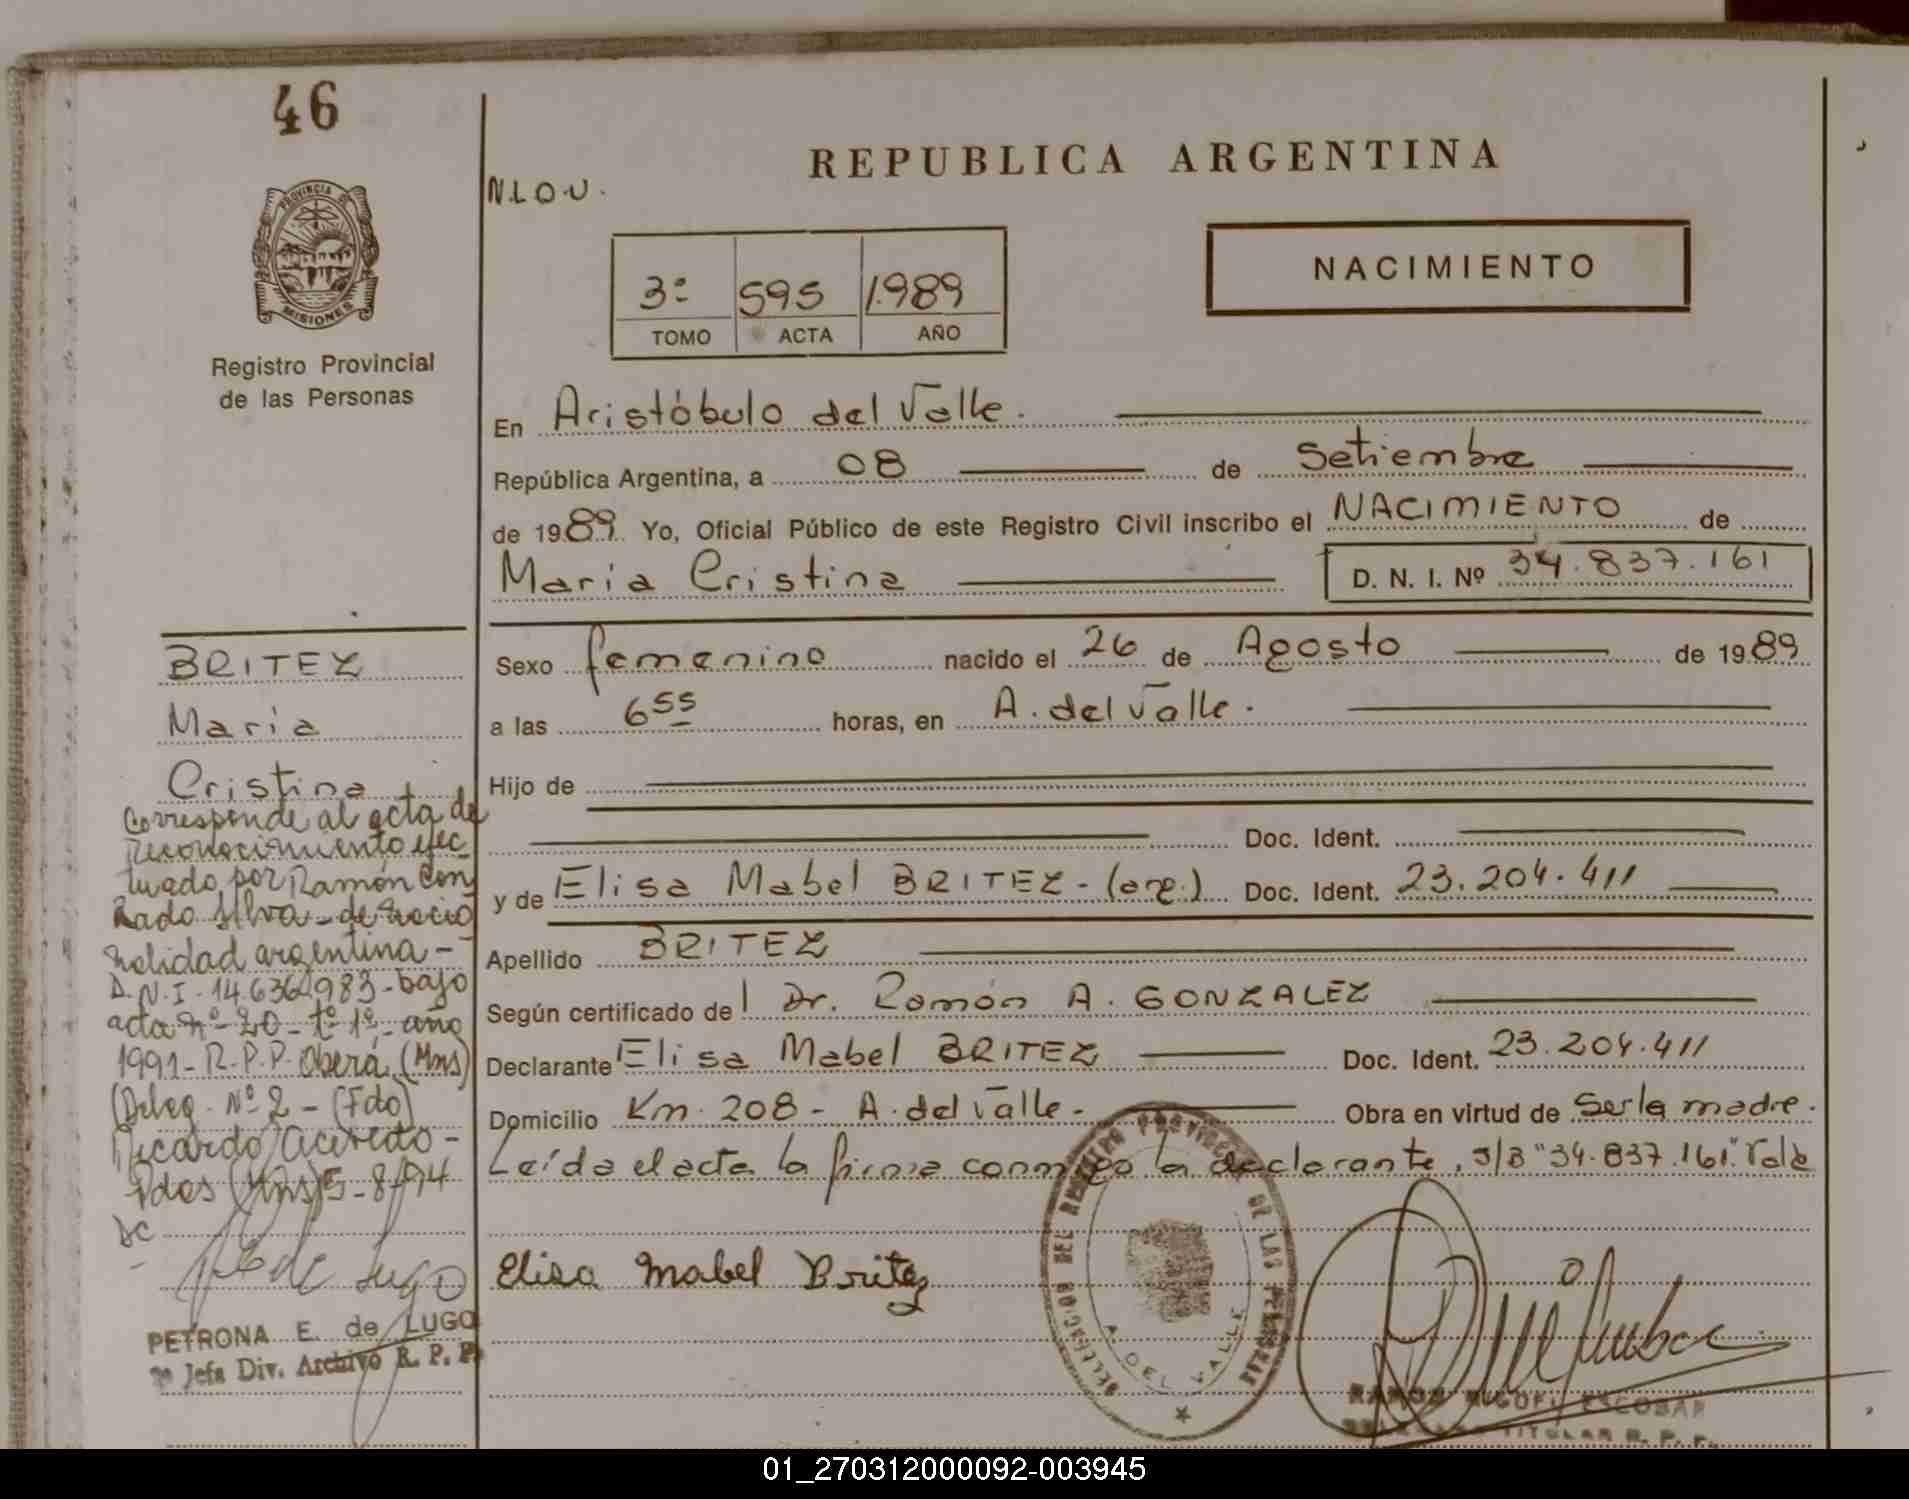 46
PROVINCIA DE
MISIONES
Registro Provincial
de las Personas
N.L.O.U.
REPUBLICA ARGENTINA
3º 595 1.989
TOMO ACTA AÑO
NACIMIENTO
En Aristóbulo del Valle.
República Argentina, a 08 de Setiembre
de 1989. Yo, Oficial Público de este Registro Civil inscribo el NACIMIENTO de
María Cristina D. N. I. Nº 34.837.161
Sexo femenino nacido el 26 de Agosto de 1989
a las 6 55 horas, en A. del Valle.
Hijo de
Doc. Ident.
y de Elisa Mabel BRITEZ - (arg.) Doc. Ident. 23.204.411
Apellido BRITEZ
Según certificado del Dr. Ramón A. GONZALEZ
Declarante Elisa Mabel BRITEZ Doc. Ident. 23.204.411
Domicilio Km. 208 - A. del Valle - Obra en virtud de Ser la madre.
Leída el acta la firma conmigo la declarante, S/B "34.837.161". Vale
Elisa Mabel Britez
DELEGACION DEL REGISTRO PROVINCIAL DE LAS PERSONAS
A. DEL VALLE
RAMON MIGUEL ESCOBAR
TITULAR R. P. P.
BRITEZ
María
Cristina
Corresponde al acta de
reconocimiento efec
tuado por Ramón Con
rado Silva - de nacio
nalidad argentina -
D.N.I. 14.636.983 - bajo
acta nº 20 - tº 1º - año
1991 - R.P.P. Oberá (Mns)
(Deleg. Nº 2 - (Fdo)
Ricardo Acevedo -
Pdas (Mns) 5-8-94
PETRONA E. de LUGO
Jefa Div. Archivo R. P. P.
01_270312000092-003945